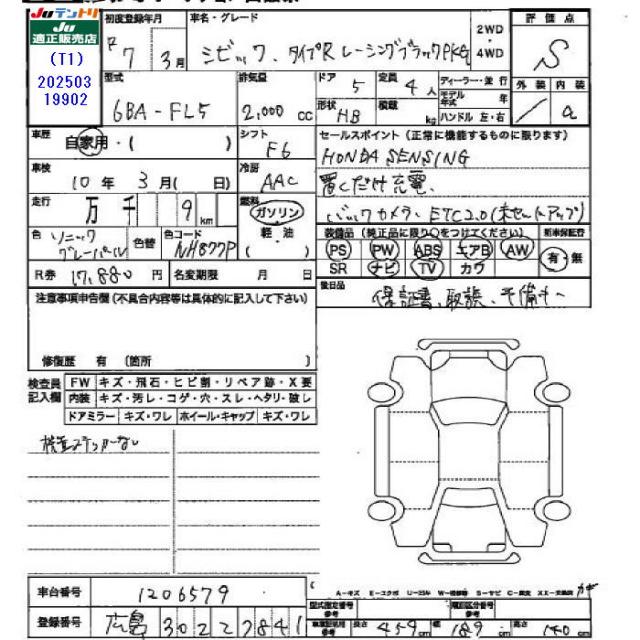 Juテントリ
Ju
適正販売店
(T1)
202503
19902
初度登録年月
R 7 年 3 月
車名・グレード
シビック、タイプR レーシングブラックPKG
2WD
4WD
評価点
S
型式
6BA-FL5
排気量
2,000 CC
ドア 5
定員 4 人
形状 HB
積載 kg
ディーラー・並行
モデル年式 年
ハンドル 左・右
外装
内装
a
車歴
自家用・( )
シフト
F6
セールスポイント(正常に機能するものに限ります)
HONDA SENSING
置くだけ充電、
バックカメラ、ETC2.0(未セットアップ)
車検
10 年 3 月( 日)
冷房
AAC
走行
万 千 9 km
燃料
ガソリン
軽・油
( )
色
ソニック
グレーパール
色替
色コード
NH877P
装備品(純正品に限り○をつけてください)
新車保証書
PS PW ABS エアB AW
SR ナビ TV カワ
有・無
R券 17,880 円
名変期限 月 日
後日品
保証書、取説、予備キー
注意事項申告欄(不具合内容等は具体的に記入して下さい)
修復歴 有 (箇所 )
検査員
記入欄
FW キズ・飛石・ヒビ割・リペア跡・X要
内装 キズ・汚レ・コゲ・穴・スレ・ヘタリ・破レ
ドアミラー キズ・ワレ ホイール・キャップ キズ・ワレ
検査ステッカーない
車台番号 1206579
登録番号 広島 302 ス 7841
A-キズ E-エクボ
カギ
型式指定番号
参考
類別区分番号
参考
車検証記載
参考
長さ 459 cm 幅 189 cm 高さ 140 cm